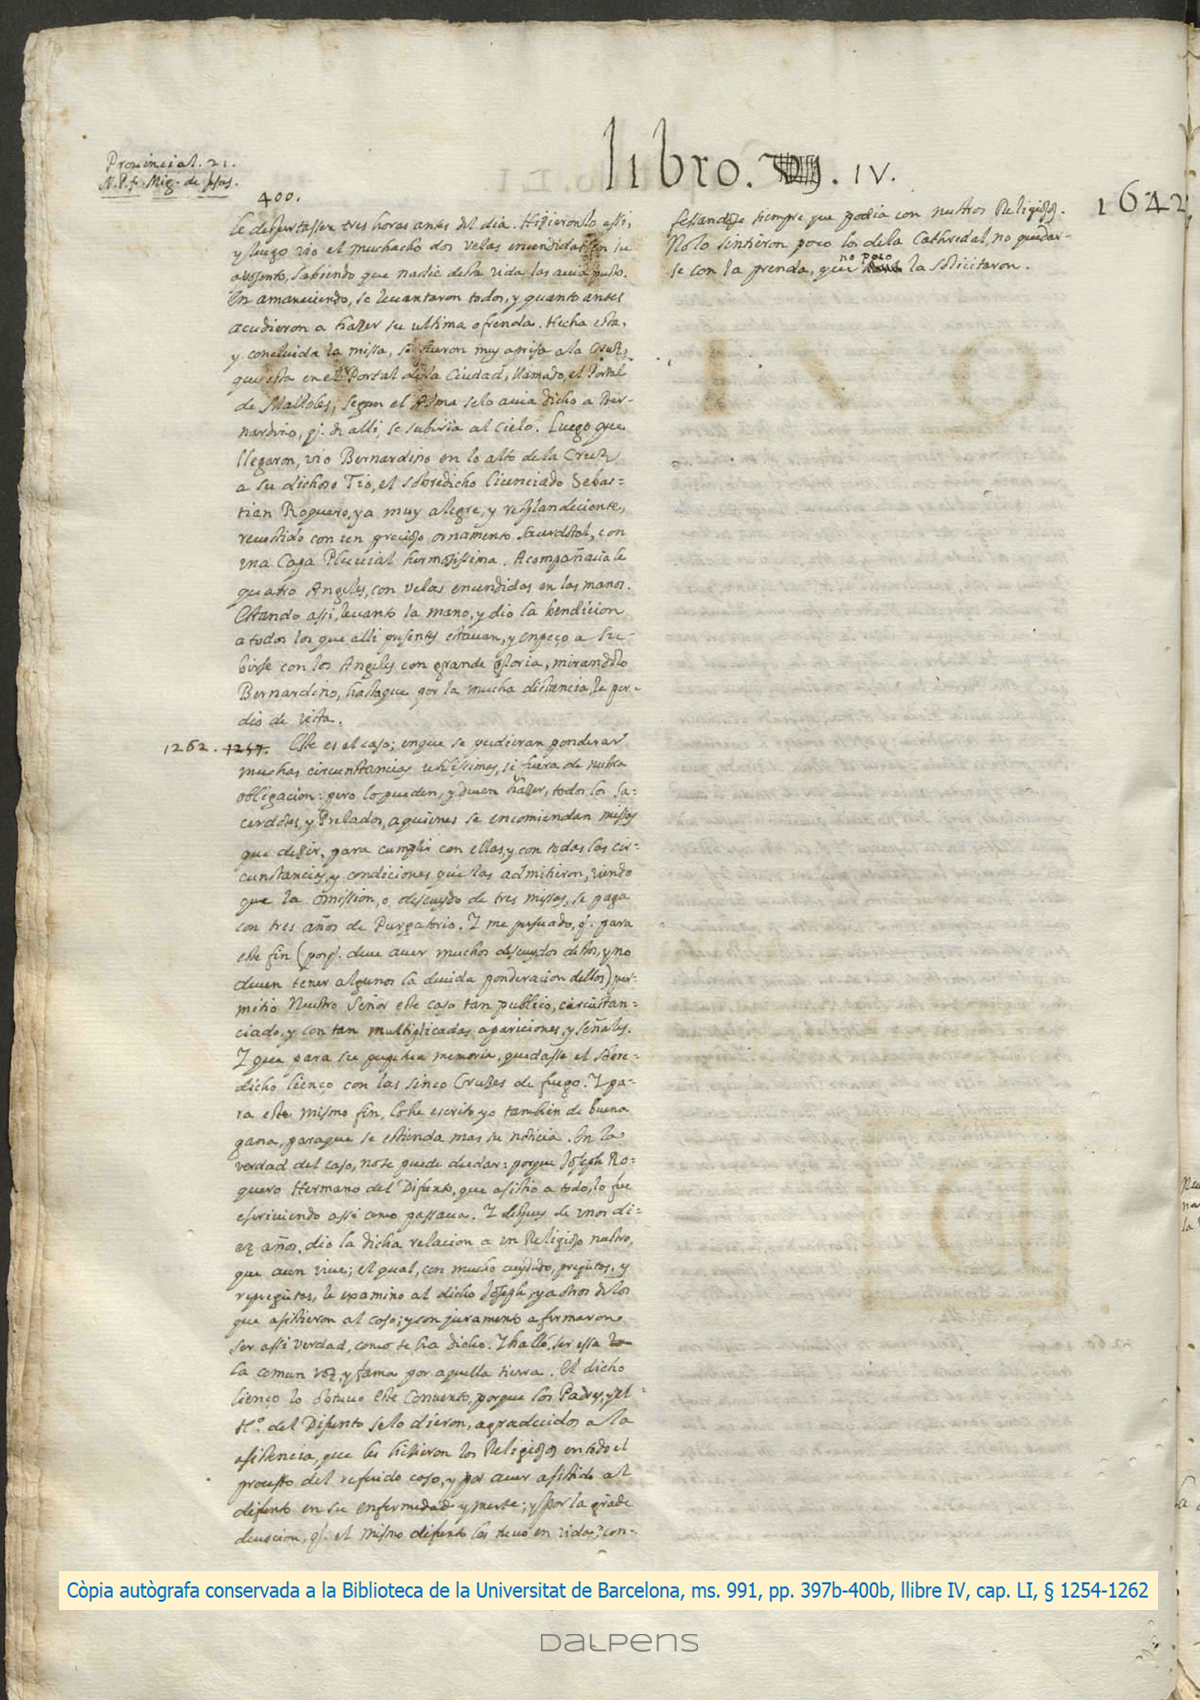 Provincial. 21.
N. P. f. Mig. de Jesus.
libro. IV.
1642
400.
le despertassen tres horas antes del dia. Hizieronlo assi,
y luego vio el muchacho dos velas encendidas en su
aposento, sabiendo que nadie desta vida las auia puesto.
En amaneciendo, se leuantaron todos, y quanto antes
acudieron a hazer su ultima ofrenda. Hecha esta,
y concluida la missa, se fueron muy aprisa a la Cruz,
que esta en el Portal de la Ciudad, llamado, el Portal
de Malloles, segun el Alma selo auia dicho a Ber-
nardino, q. de alli, se subiria al cielo. Luego que
llegaron, vio Bernardino en lo alto de la Cruz
a su dichoso Tio, el sobredicho licenciado Sebas=
tian Roguero, ya muy alegre, y resplandeciente,
reuestido con un precioso ornamento sacerdotal, con
vna Capa Pluuial hermosissima. Acompañauale
quatro Angeles, con velas encendidas en las manos.
Estando assi, leuanto la mano, y dio la bendicion
a todos los que alli presentes estauan, y enpeço a su-
birse con los Angeles con grande gloria, mirandolo
Bernardino, hastaque por la mucha distancia, le per-
dio de vista.
1262. 1257. Este es el caso; enque se pudieran ponderar
muchas circunstancias utilissimas, si fuera de nuestra
obligacion: pero lo pueden, y deuen hazer, todos los sa=
cerdotes, y Prelados, aquienes se encomiendan missas
que dezir, para cumplir con ellas, y con todas las cir=
cunstancias, y condiciones que las admitieron, viendo
que la omission, o, descuydo de tres missas, se paga
con tres años de Purgatorio. Y me persuado, q. para
este fin (porq. deue auer muchos descuydos destos, y no
deuen tener algunos la deuida ponderacion dellos) per=
mitio Nuestro Señor este caso tan publico, circũstan=
ciado, y con tan multiplicadas apariciones, y señales.
Y que para su perpetua memoria, quedasse el sobre=
dicho lienço con las sinco Cruzes de fuego. Y pa=
ra este mismo fin, lo he escrito yo tambien de buena
gana, paraque se estienda mas su noticia. En la
verdad del caso, no se puede dudar: porque Joseph Ro=
guero Hermano del Difunto, que asistio a todo, lo fue
escriuiendo assi como passaua. Y despues de vnos di=
ez años, dio la dicha relacion a un Religioso nuestro,
que aun viue; el qual, con mucho cuydado, pregũtas, y
repregũtas, le examino al dicho Joseph, y a otros de los
que asistieron al caso; y con juramento afirmaron
ser assi verdad, como se ha dicho. Y halló, ser essa
la comun voz, y fama por aquella tierra. El dicho
lienço lo obtuuo este Conuento, porque los Padres, y el
Hº. del Difunto selo dieron, agradecidos a la
asistencia, que les hizieron los Religiosos en todo el
processo del referido caso, y por auer asistido al
difunto en su enfermedad y muerte; y por la grãde
deuocion, q. el mismo difunto les tuuo en vida, con-
fessandose siempre que podia con nuestros Religiosos.
No lo sintieron poco los de la Cathedral, no quedar-
se con la prenda, que no poco la solicitaron.
Còpia autògrafa conservada a la Biblioteca de la Universitat de Barcelona, ms. 991, pp. 397b-400b, llibre IV, cap. LI, § 1254-1262
DALPENS